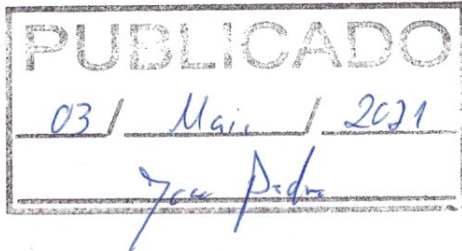 PUBLICADO
03 / Maio / 2021
João Pedro